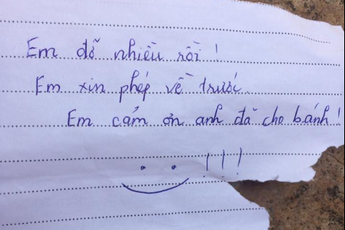 Em đỡ nhiều rồi !
Em xin phép về trước
Em cảm ơn anh đã cho bánh !
!!!